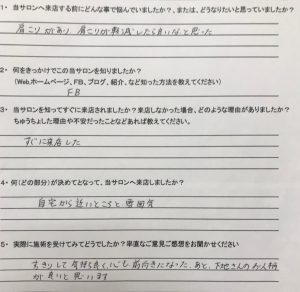 1・ 当サロンへ来店する前にどんな事で悩んでいましたか？、または、どうなりたいと思っていましたか？
肩こりがあり 肩こりが軽減したら良いなと思った
2・ 何をきっかけでこの当サロンを知りましたか？
(Webホームページ、FB、ブログ、紹介、など知った方法を教えてください)
FB
3・ 当サロンを知ってすぐに来店されましたか？来店しなかった場合、どのような理由がありましたか？
ちゅうちょした理由や不安だったことなどあれば教えてください。
すぐに来店した
4・ 何(どの部分)が決めてとなって、当サロンへ来店しましたか？
自宅から近いところと 雰囲気
5・ 実際に施術を受けてみてどうでしたか？率直なご意見ご感想をお聞かせください
すっきりして気持ち良く、心も前向きになった。あと、下地さんのお人柄
が良いと思います